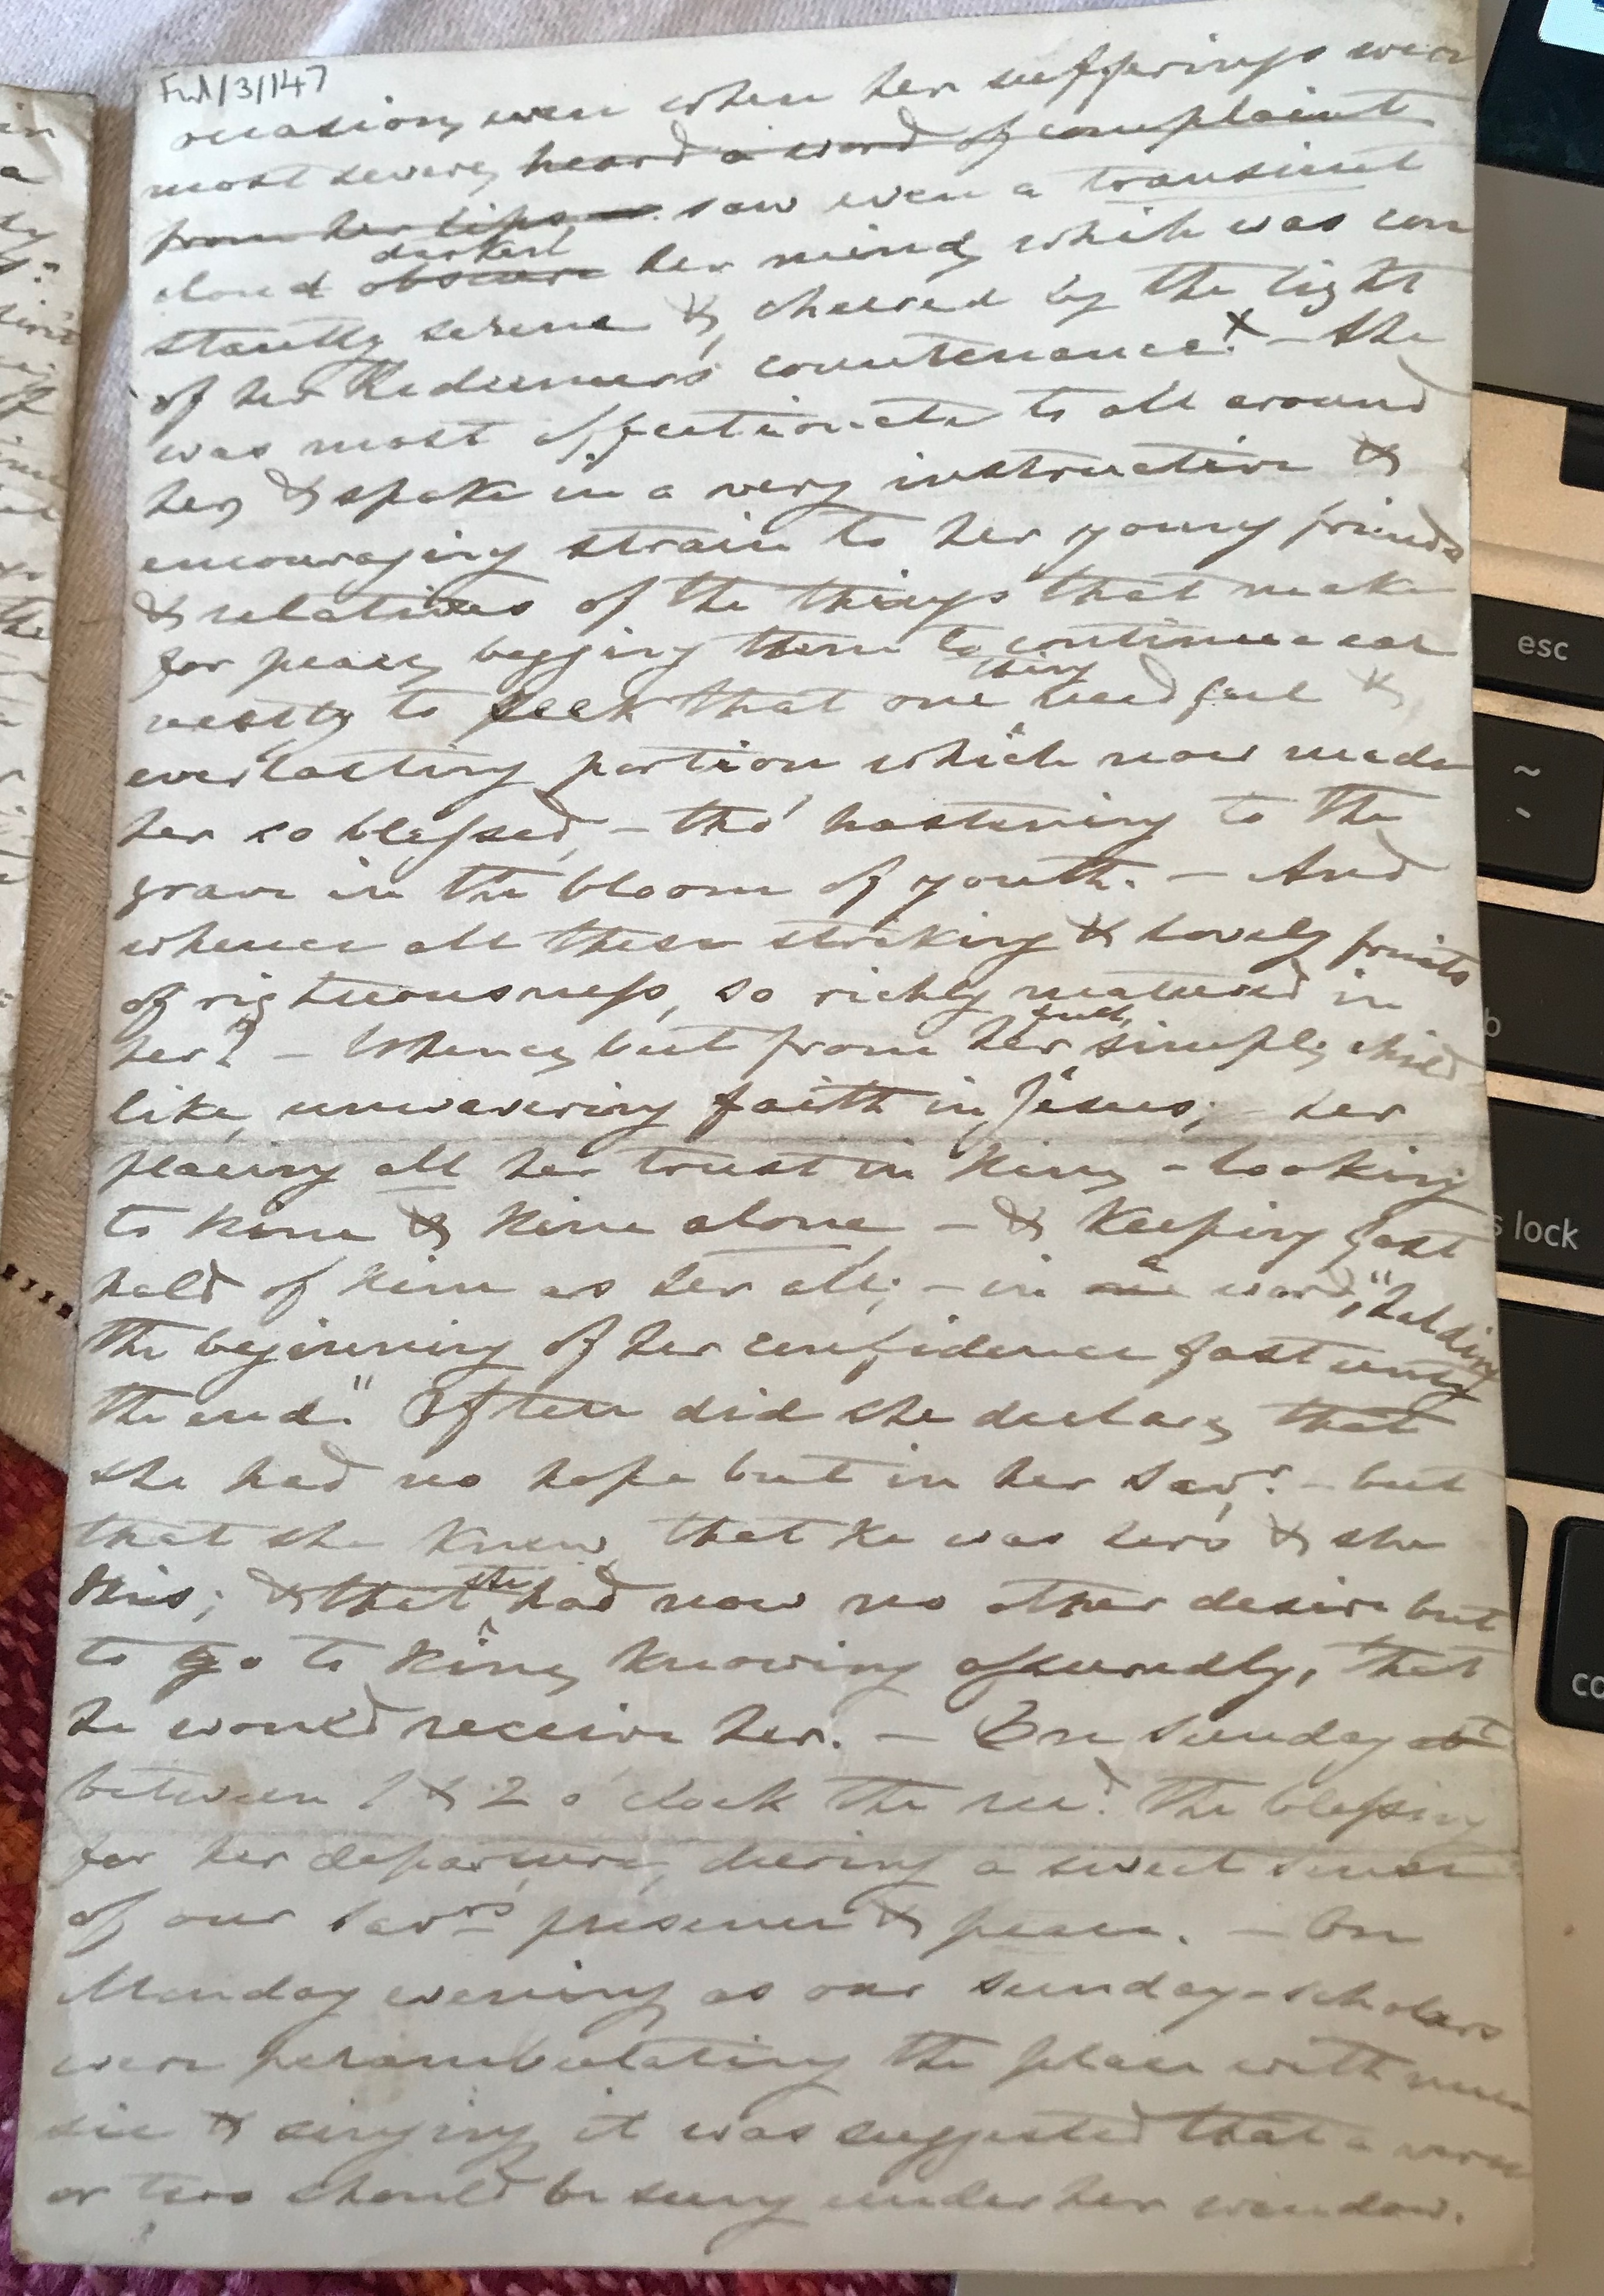 Ful/3/147
occasion, even when her sufferings were
most severe, heard a word of complaint
from her lips, saw even a transient
cloud obscure darken her mind, which was con
stantly serene &, cheered by the light
of her Redeemer's countenance. x – She
was most affectionate to all around
her, & spoke in a very instructive &
encouraging strain to her young friends
& relatives of the things that make
for peace, begging them to continue ear
nestly to seek that one thing needful &
everlasting portion which now made
her so blessed, – tho' hastening to the
grave in the bloom of youth. – And
whence all these striking & lovely fruits
of righteousness, so richly matured in
her? – Whence, but from her simple, child
like, unwavering faith in Jesus; – her
placing all her trust in Him, – looking
to Him & Him alone – & keeping fast
hold of Him as her all; – in one a word, "holding
the beginning of her confidence fast unto
the end." Often did she declare, that
she had no hope but in her Savr. – but
that she knew, that He was hers & she
His; & that she had now no other desire but
to go to Him, knowing assuredly, that
he would receive her. – On Sunday at
between 1 & 2 o'clock she recd. the blessing
for her departure, during a sweet sense
of our Savrs presence & peace. – On
Monday evening as our Sunday-scholars
were perambulating the place with mu
sic & singing, it was suggested that a verse
or two should be sung under her window.
esc
~
`
b
s lock
co